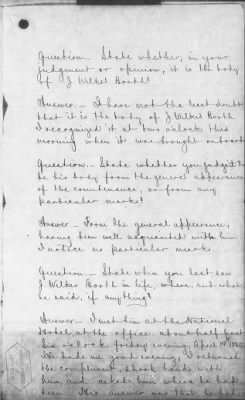 Question - State whether, in your
judgment or opinion, it is the body
of J Wilkes Booth?
Answer - I have not the least doubt
that it is the body of J Wilkes Booth
I recognized it at two o'clock this
morning when it was brought on board
Question - State whether you judge it to
be his body from the general appearance
of the countenance, or from any
particular marks?
Answer - From the general appearance,
having been well acquainted with him
I notice no particular mark.
Question - State when you last saw
J. Wilkes Booth in life, where, and what
he said, if anything?
Answer. I met him at the National
Hotel, at the office, about half past
six o'clock friday evening, April 14, 1865
He bade me good evening, I returned
the compliment, shook hands with
him, and asked him where he had
been. His answer was that he had